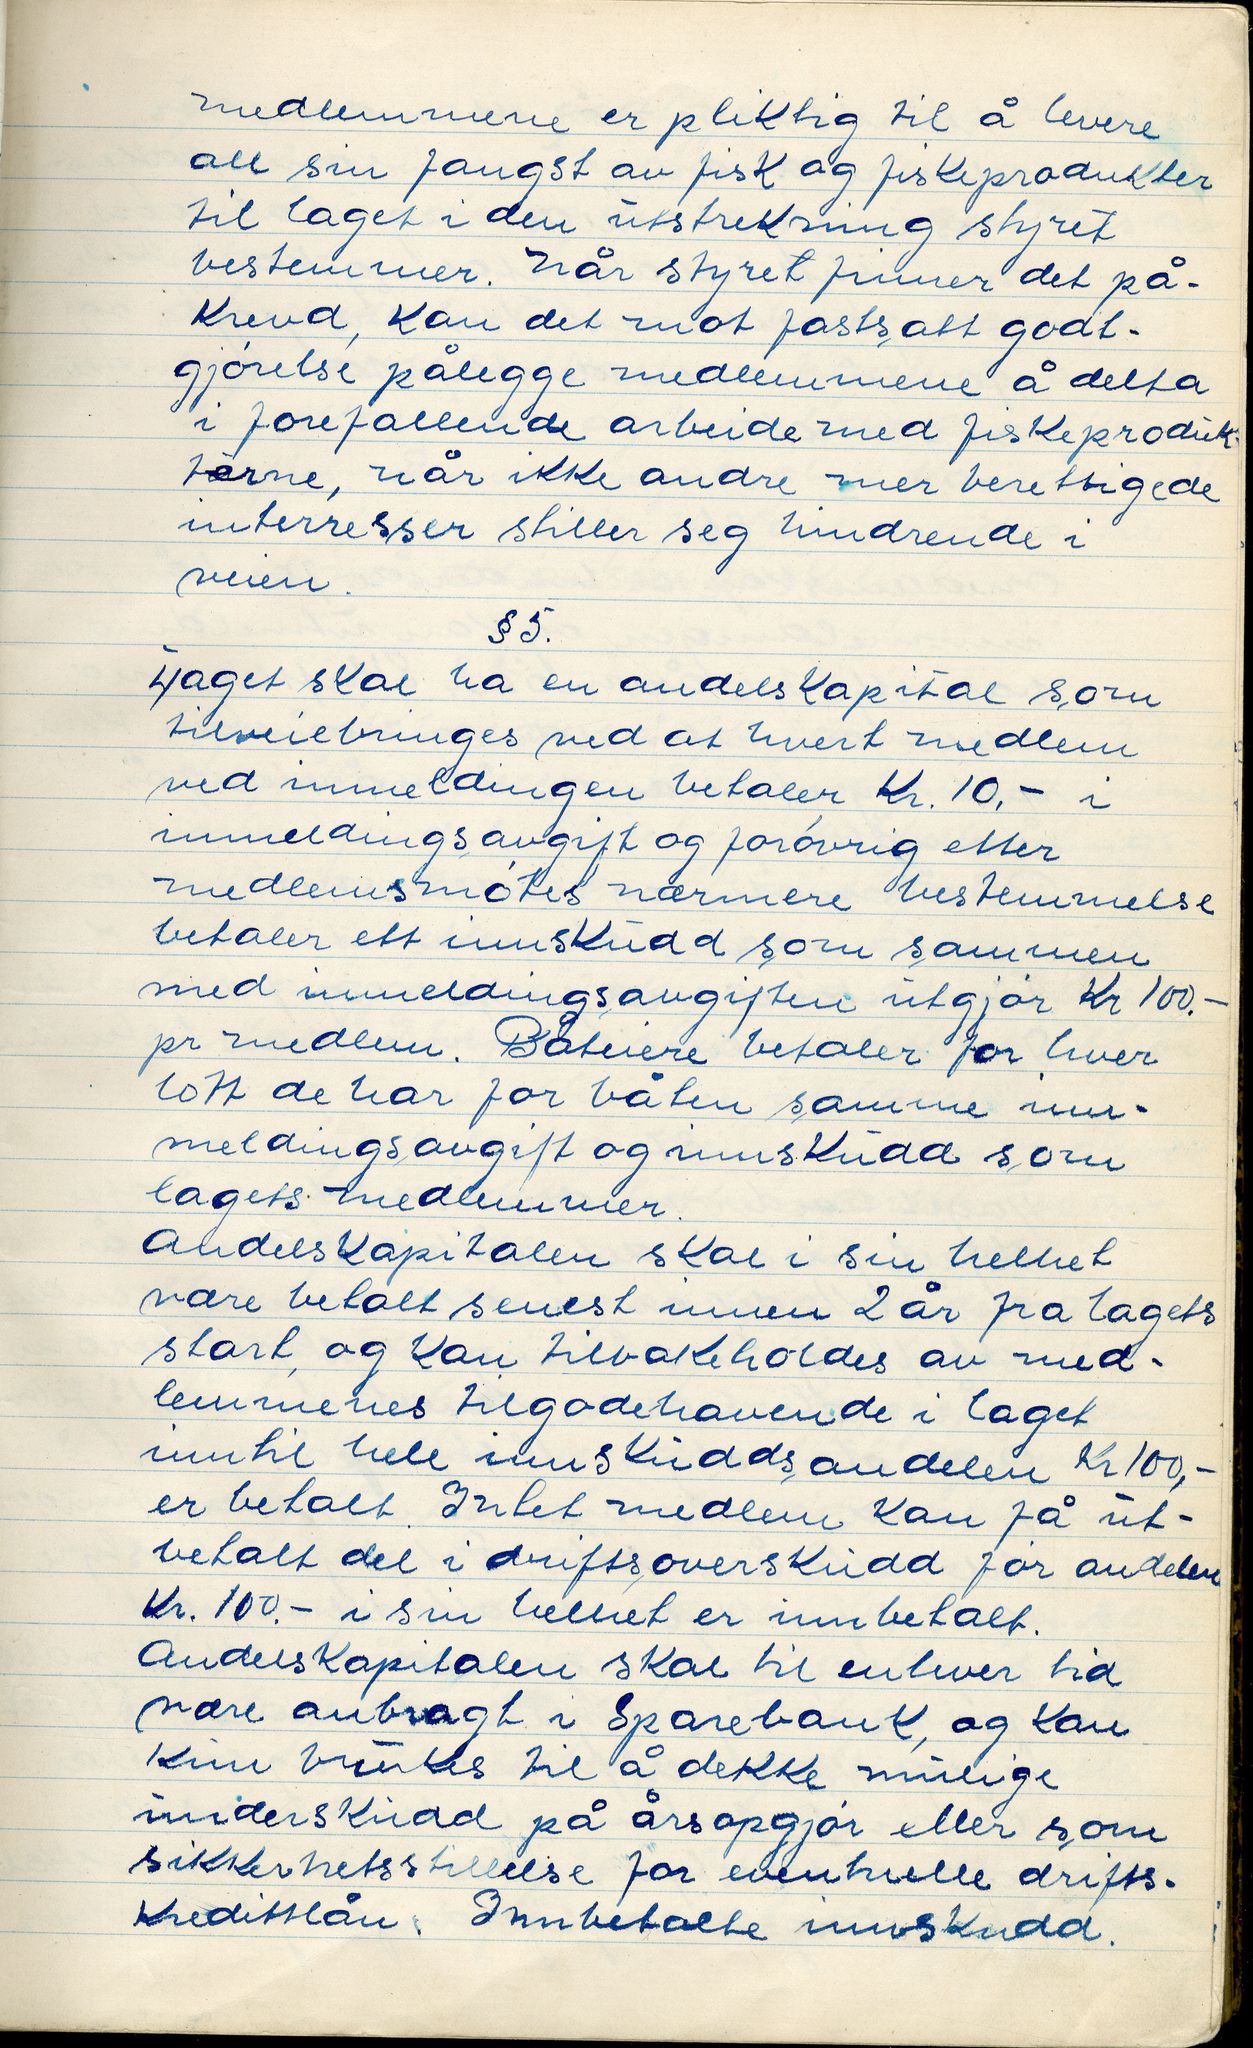 medlemmene er pliktig til å levere
all sin fangst av fisk og fiskeprodukter
til laget i den utstrekning styret
bestemmer. Når styret finner det på-
krevd, kan det mot fastsatt godt-
gjörelse pålegge medlemmene å delta
i forefallende arbeide med fiskeproduk-
terne, når ikke andre mer berettigede
interresser stiller seg hindrende i
veien.
§ 5.
Laget skal ha en andelskapital som
tilveiebringes ved at hvert medlem
ved innmeldingen betaler Kr. 10,- i
innmeldingsavgift og forövrig etter
medlemsmötes nærmere bestemmelse
betaler ett innskudd som sammen
med innmeldingsavgiften utgjör Kr 100.-
pr medlem. Båteiere betaler for hver
lott de har for båten samme inn-
meldingsavgift og innskudd som
lagets medlemmer.
Andelskapitalen skal i sin helhet
være betalt senest innen 2 år fra lagets
start, og kan tilbakeholdes av med-
lemmenes tilgodehavende i laget
inntil hele innskuddsandelen Kr 100,-
er betalt. Intet medlem kan få ut-
betalt del i driftsoverskudd för andelen
Kr. 100.- i sin helhet er innbetalt.
Andelskapitalen skal til enhver tid
være anbragt i Sparebank, og kan
kun brukes til å dekke mulige
underskudd på årsopgjör eller som
sikkerhetsstillelse for eventuelle drifts-
kredittlån. Innbetalte innskudd.